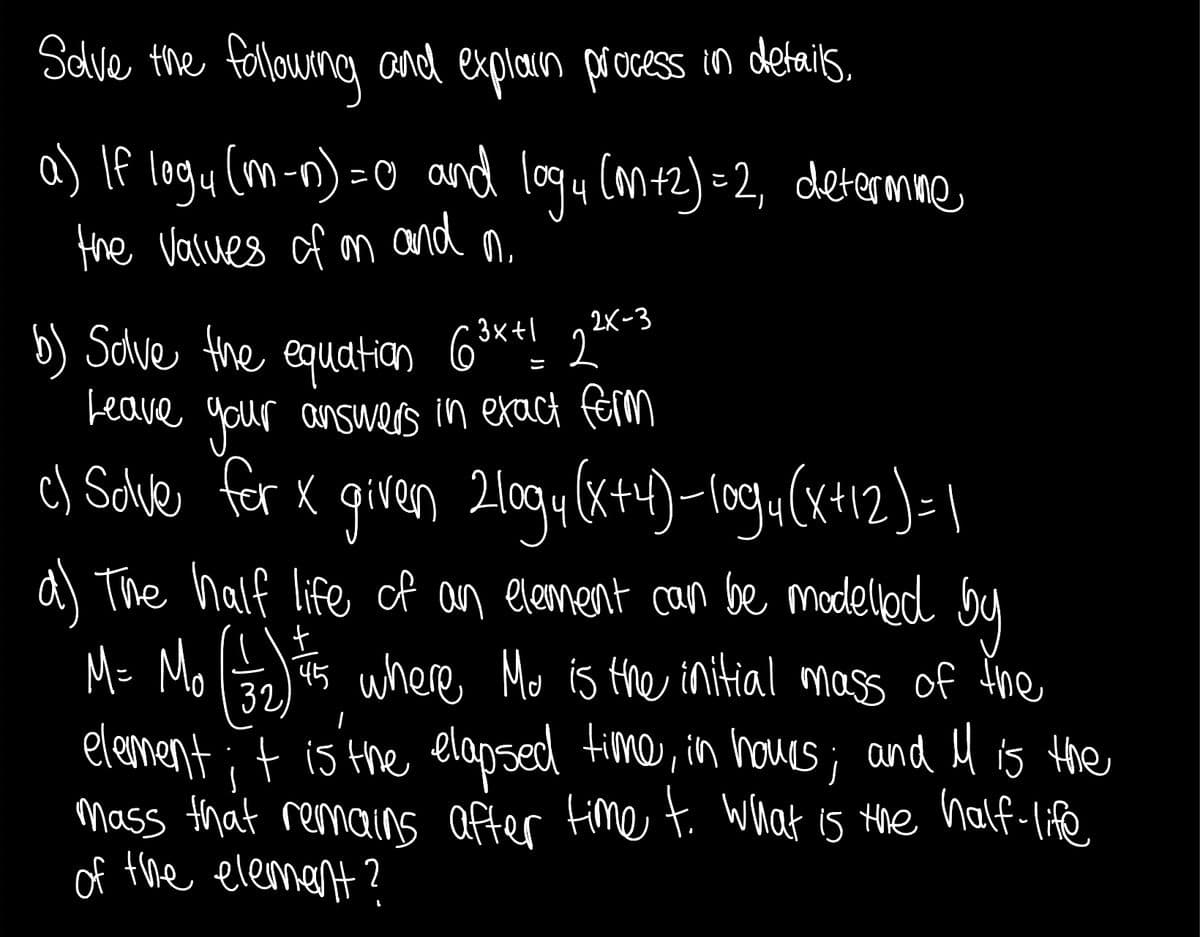 Solve the following and explain process in details.
a) If log₄(m-n)=0 and log₄(m+2)=2, determine
the values of m and n.
b) Solve the equation 6^(3x+1) = 2^(2x-3)
Leave your answers in exact form
c) Solve for x given 2log₄(x+4)-log₄(x+12)=1
d) The half life of an element can be modelled by
M= M₀(1/32)^(t/45), where M₀ is the initial mass of the
element; t is the elapsed time, in hours; and M is the
mass that remains after time t. What is the half-life
of the element?